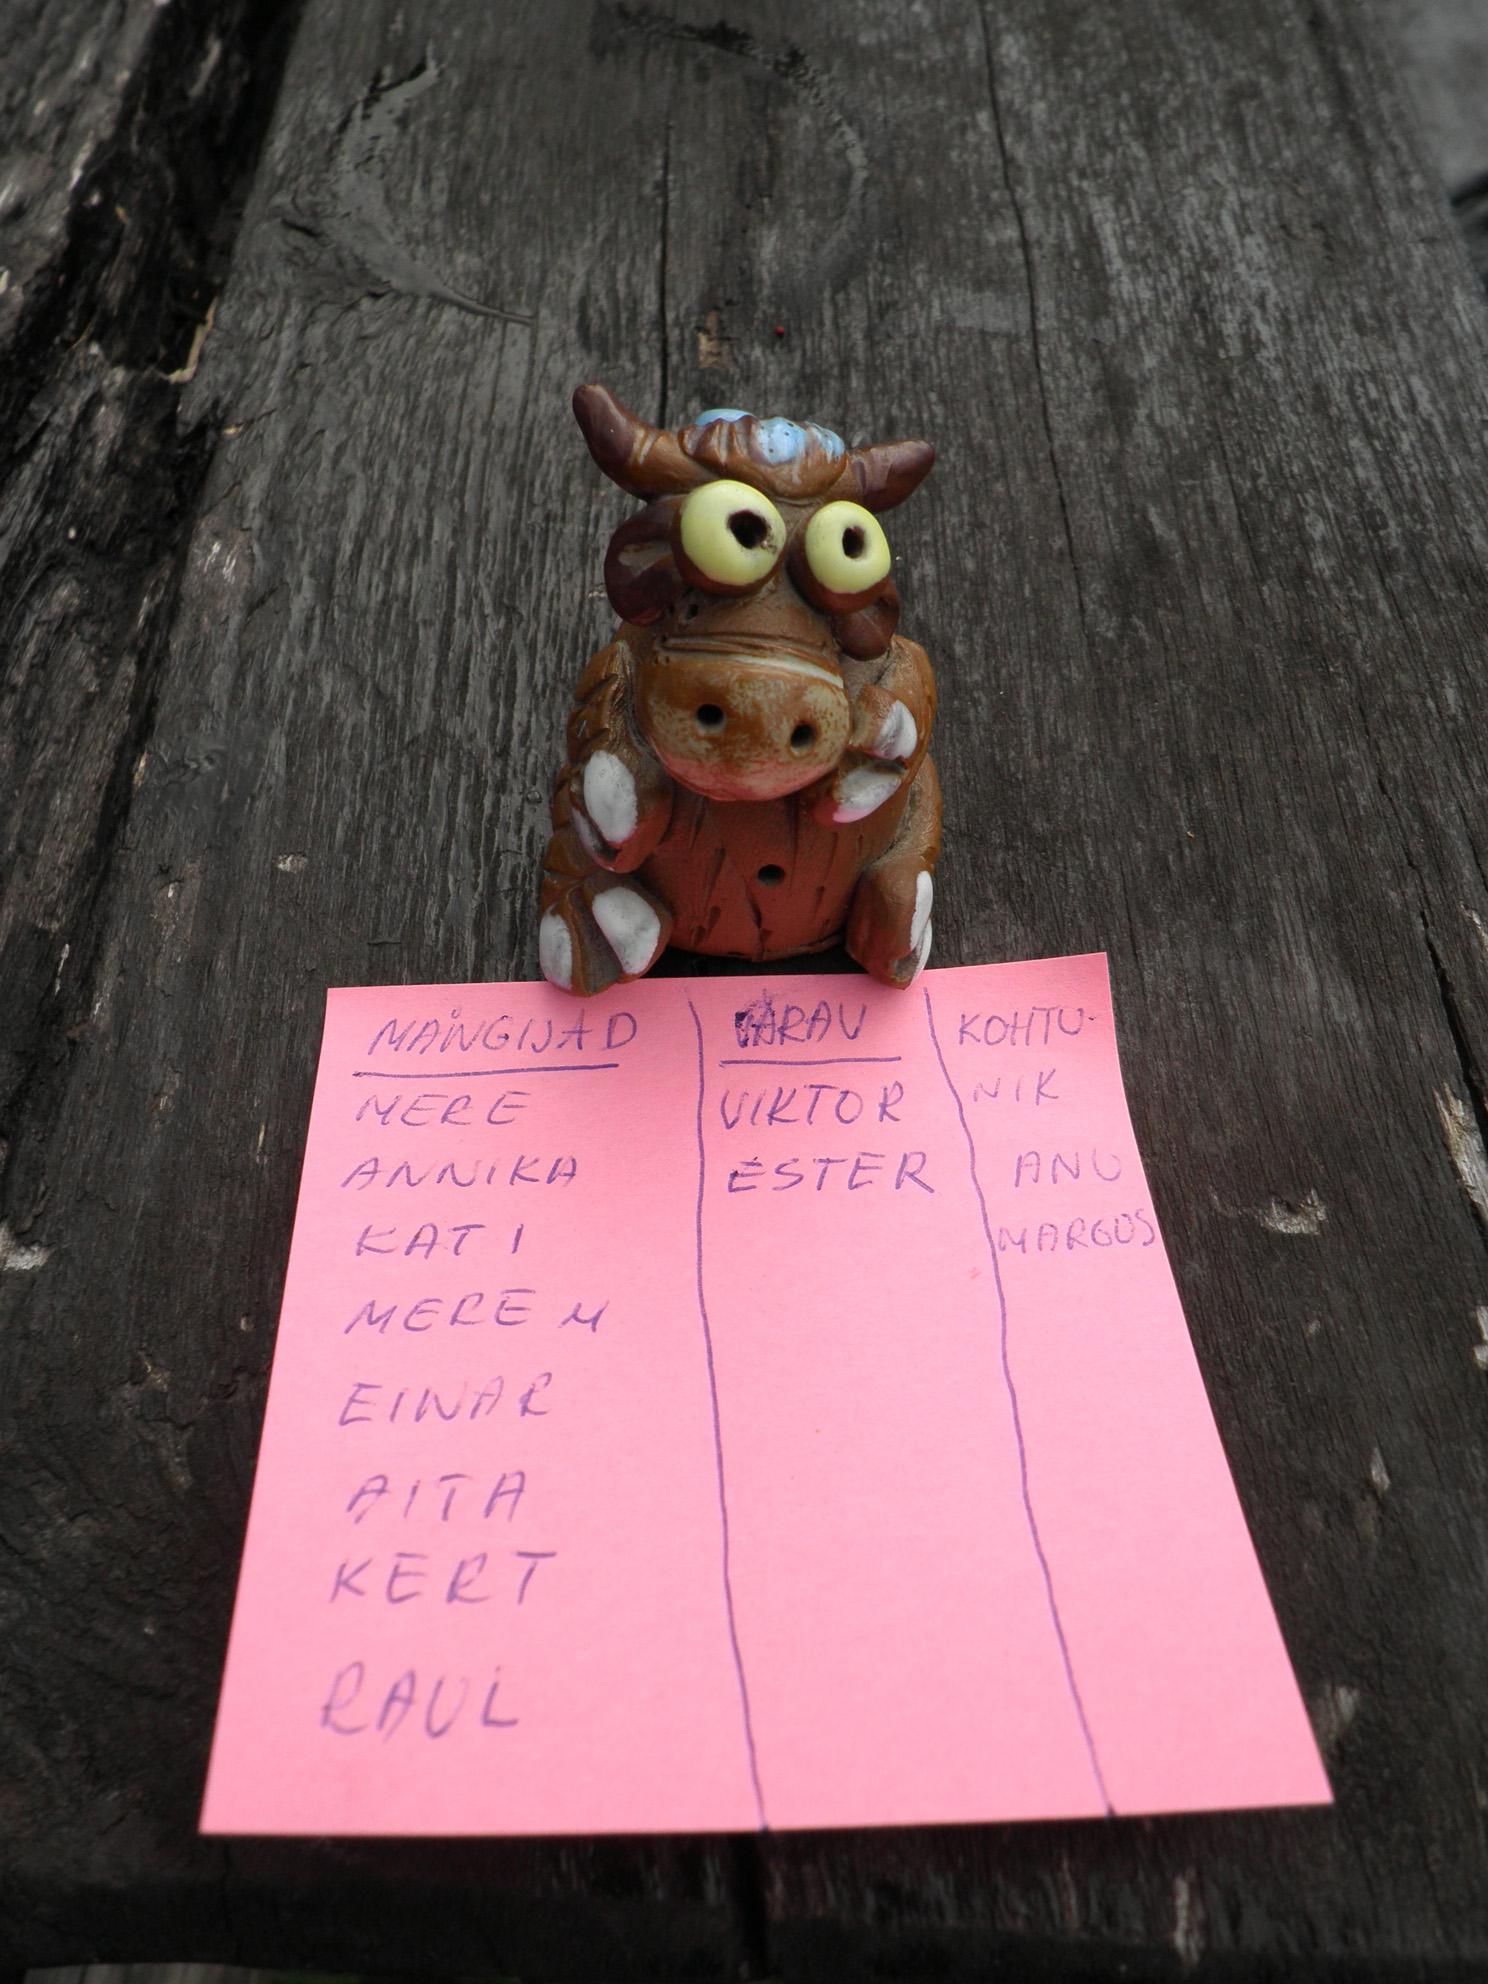 MÄNGIJAD
MERE
ANNIKA
KATI
MERE M
EINAR
AITA
KERT
RAUL
VÄRAV
VIKTOR
ESTER
KOHTU-
NIK
ANU
MARGUS